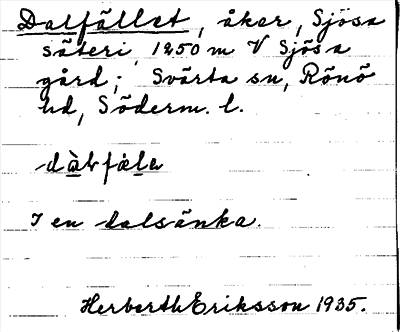 Dalfället, åker, Sjösa
säteri 1250 m V Sjösa
gård; Svärta sn, Rönö
hd, Söderm. l.
I en dalsänka.
Herberth Eriksson 1935.